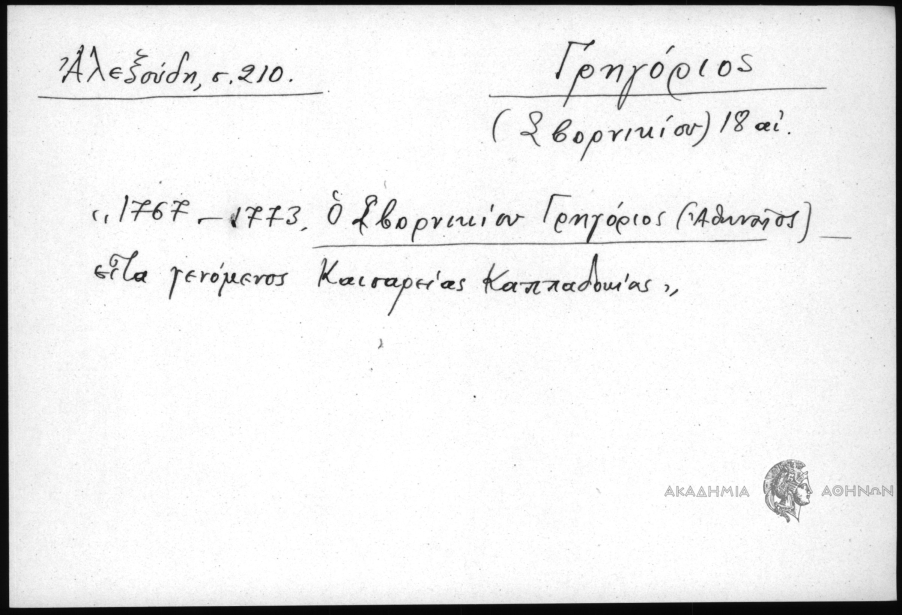 Ἀλεξούδη, σ. 210.
Γρηγόριος
(Σβορνικίου) 18 αἰ.
„1767 – 1773. Ὁ Σβορνικίου Γρηγόριος (Ἀθηναῖος) —
εἶτα γενόμενος Καισαρείας Καππαδοκίας"
ΑΚΑΔΗΜΙΑ ΑΘΗΝΩΝ